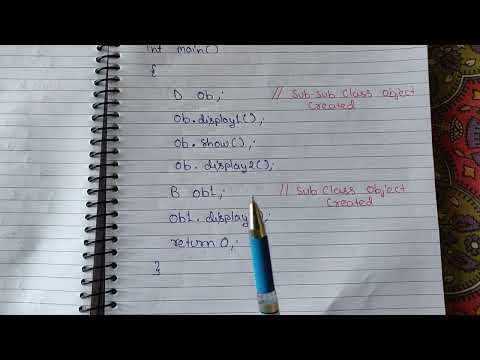 int main()
{
D ob; // Sub-Sub Class Object Created
ob.display1();
ob.show();
ob.display2();
B ob1; // Sub Class Object Created
ob1.display
return 0;
}